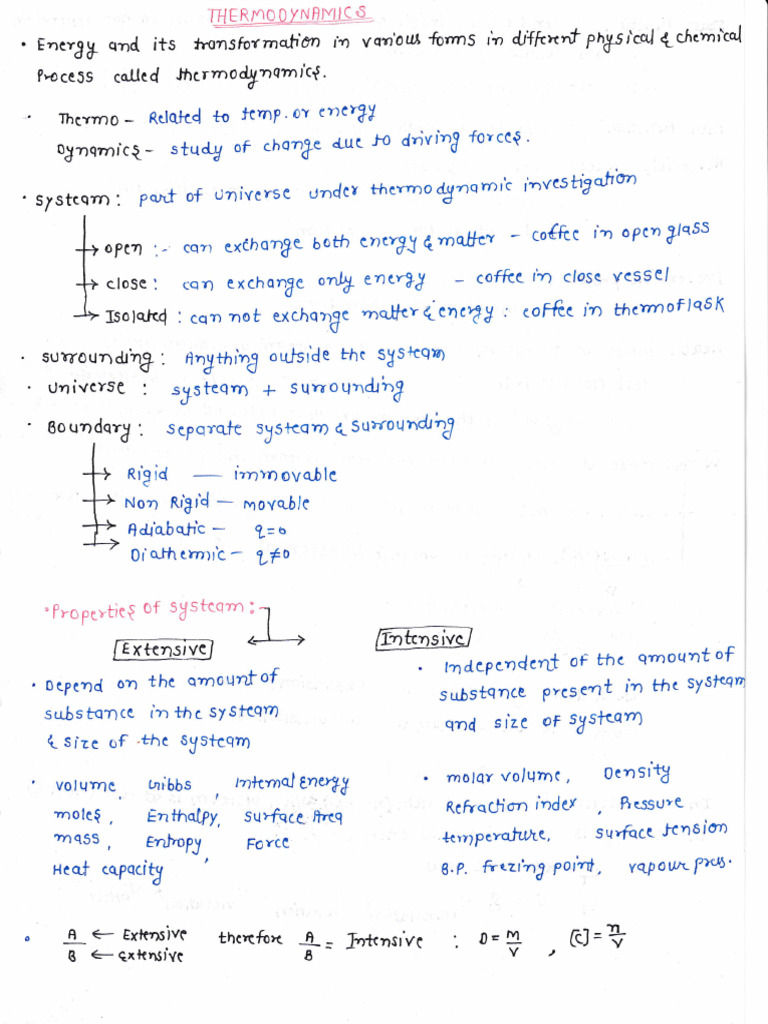 THERMODYNAMICS
• Energy and its transformation in various forms in different physical & chemical
Process called thermodynamics.
• Thermo - Related to temp. or energy
Dynamics - study of change due to driving forces.
• systeam: part of universe under thermodynamic investigation
→ open :- can exchange both energy & matter - coffee in open glass
→ close: can exchange only energy - coffee in close vessel
→ Isolated : can not exchange matter & energy : coffee in thermoflask
• surrounding: Anything outside the systeam
• universe : systeam + surrounding
• Boundary: separate systeam & surrounding
→ Rigid — immovable
→ Non Rigid — movable
→ Adiabatic - q=0
→ Diathermic - q≠0
• Properties of systeam:
Extensive
Intensive
• Depend on the amount of
substance in the systeam
& size of the systeam
• Independent of the amount of
substance present in the systeam
and size of systeam
• volume, Gibbs, Internal Energy
moles, Enthalpy, surface Area
mass, Entropy, Force
Heat capacity
• molar volume, Density
Refraction index, Pressure
temperature, surface tension
B.P. frezing point, vapour pres.
• A/B ← Extensive ← extensive therefore A/B = Intensive : D = M/V , [C] = n/V